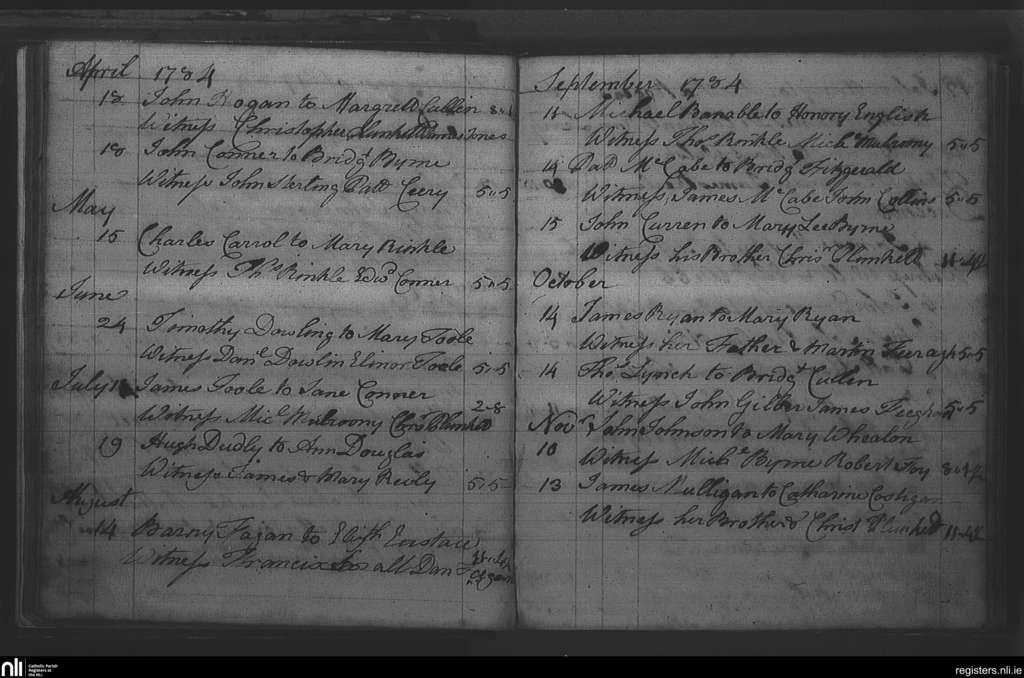 April 1784
18 John Hogan to Margrett Cullin
Witness Christopher Plunkett James Jones
18 John Conner to Bridgt Byrne
Witness John Sterling Patt Geery 5"5
May
15 Charles Carrol to Mary Rinkle
Witness Thos Rinkle Edwd Conner 5"5
June
24 Timothy Dowling to Mary Toole
Witness Danl Dowlin Elinor Toole 5"5
July James Toole to Jane Conner
2-8
Witness Micl Mulroony Chrisr Plunket
19 Hugh Dudly to Ann Douglas
Witness James & Mary Reily 5"5
August
14 Barny Fagan to Elizth Eustace
Witness Francis Dan Fagan
September 1784
11 Michael Banable to Honory English
Witness Thos Rinkle Michl Mulrony 5"5
14 Patt McCabe to Bridgt Fitzgerald
Witness James McCabe John Collins 5"5
15 John Curren to Mary Lee Byrne
Witness his Brother Chrisr Plunkett 11"4½
October
14 James Ryan to Mary Ryan
Witness her Father & Martin 5"5
14 Thos Lynch to Bridgt Cullen
Witness John James 5"5
Novr John Johnson to Mary Whealon
10
Witness Michl Byrne Robert Foy
13 James Mulligan to Catharine Costigan
Witness her Brother & Christ Plunked 11"4½
nli
Catholic Parish
Registers at
the NLI
registers.nli.ie